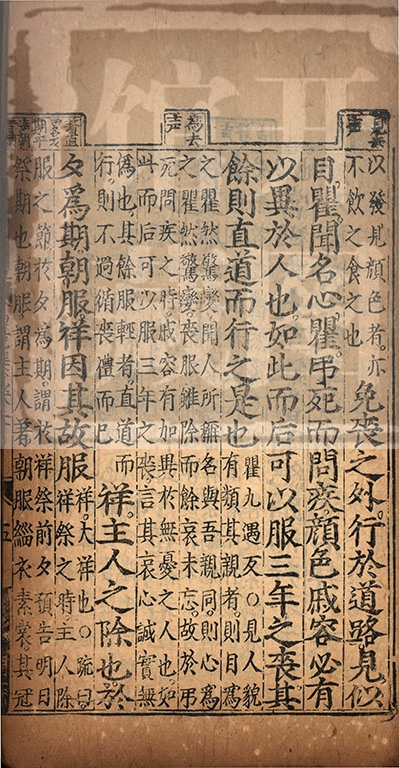 爲去
聲
以發見顏色者亦
不飲之食之也
免喪之外行於道路見似
目瞿聞名心瞿弔死而問疾顏色戚容必有
以異於人也如此而后可以服三年之喪其
餘則直道而行之是也
瞿九遇反○見人貌
有類其親者則目爲
之瞿然驚變聞人所稱名與吾親同則心爲
之瞿然驚變喪服雖除而餘哀未忘故於弔
死問疾之時戚容有加異於無憂之人也如
此而后可以服三年之喪言其哀心誠實無
僞也其餘服輕者直道而
行則不過循喪禮而已
祥主人之除也於
夕爲期朝服祥因其故服
祥大祥也○疏曰
祥祭之時主人除
服之節於夕爲期謂於祥祭前夕預告明日
祭期也朝服謂主人著朝服緇衣素裳其冠